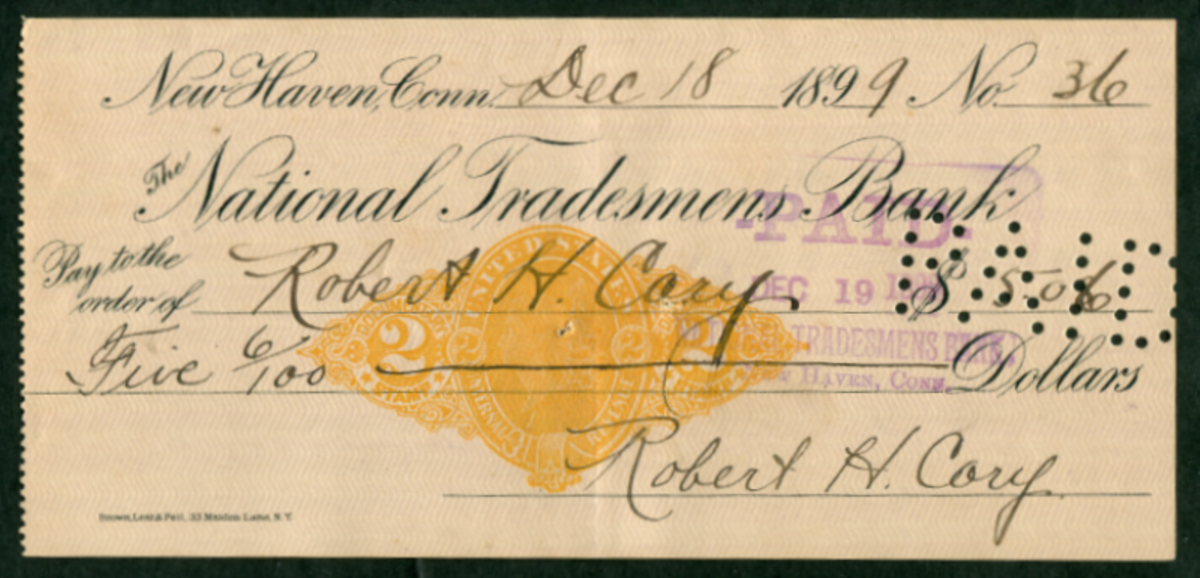 New Haven, Conn. Dec 18 1899 No. 36
The National Tradesmens Bank
PAID
Pay to the order of Robert H. Cory $ 5.06
DEC 19
Five 6/100 Dollars
TRADESMENS BANK
HAVEN, CONN.
UNITED STATES
2 2 2 2
Robert H. Cory
Brown, Lent & Pett, 83 Maiden Lane, N.Y.